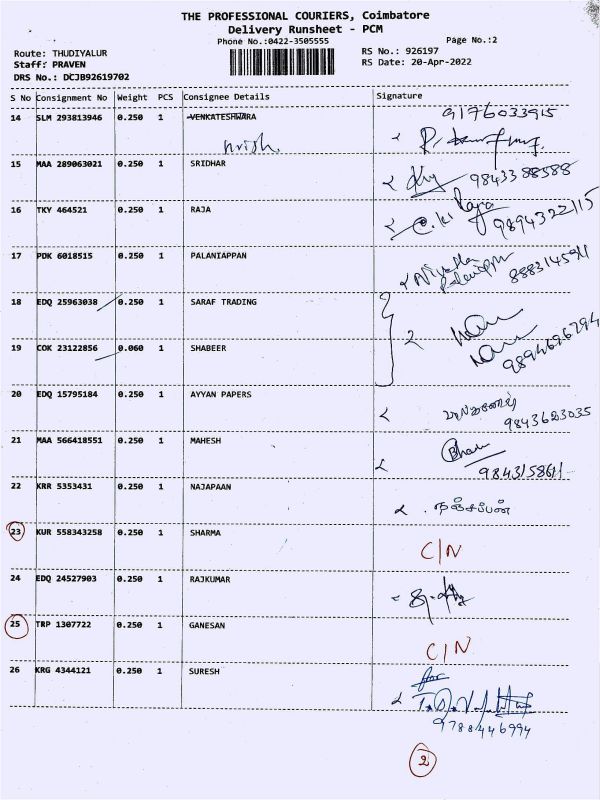 THE PROFESSIONAL COURIERS, Coimbatore
Delivery Runsheet - PCM
Phone No.:0422-3505555
Page No.:2
Route: THUDIYALUR
RS No.: 926197
Staff: PRAVEN
RS Date: 20-Apr-2022
DRS No.: DCJB92619702
S No Consignment No Weight PCS Consignee Details Signature
14 SLM 293813946 0.250 1 VENKATESHWARA 9176033915
15 MAA 289063021 0.250 1 SRIDHAR 9843388588
16 TKY 464521 0.250 1 RAJA Raja 9894322115
17 PDK 6018515 0.250 1 PALANIAPPAN
18 EDQ 25963038 0.250 1 SARAF TRADING
19 COK 23122856 0.060 1 SHABEER 9894696294
20 EDQ 15795184 0.250 1 AYYAN PAPERS
9843623035
21 MAA 566418551 0.250 1 MAHESH
22 KRR 5353431 0.250 1 NAJAPAAN நஞ்சப்பன்
23 KUR 558343258 0.250 1 SHARMA C/N
24 EDQ 24527903 0.250 1 RAJKUMAR
25 TRP 1307722 0.250 1 GANESAN C/N
26 KRG 4344121 0.250 1 SURESH for
9788446994
2